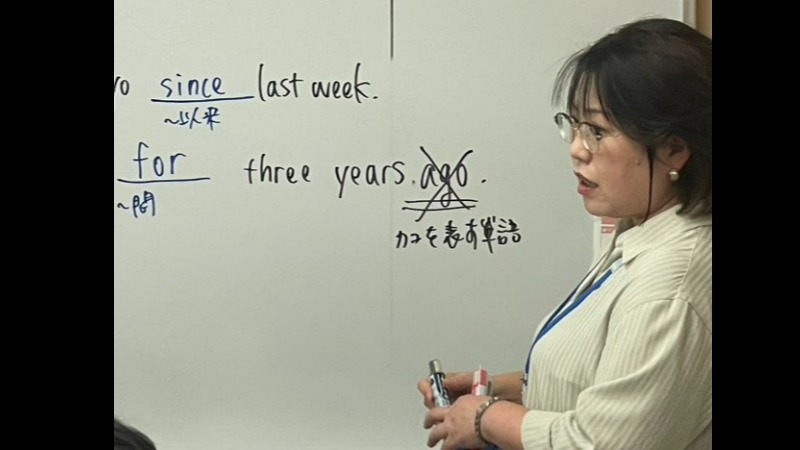 yo since last week.
~以来
for three years. ago.
~間
カコを表す単語